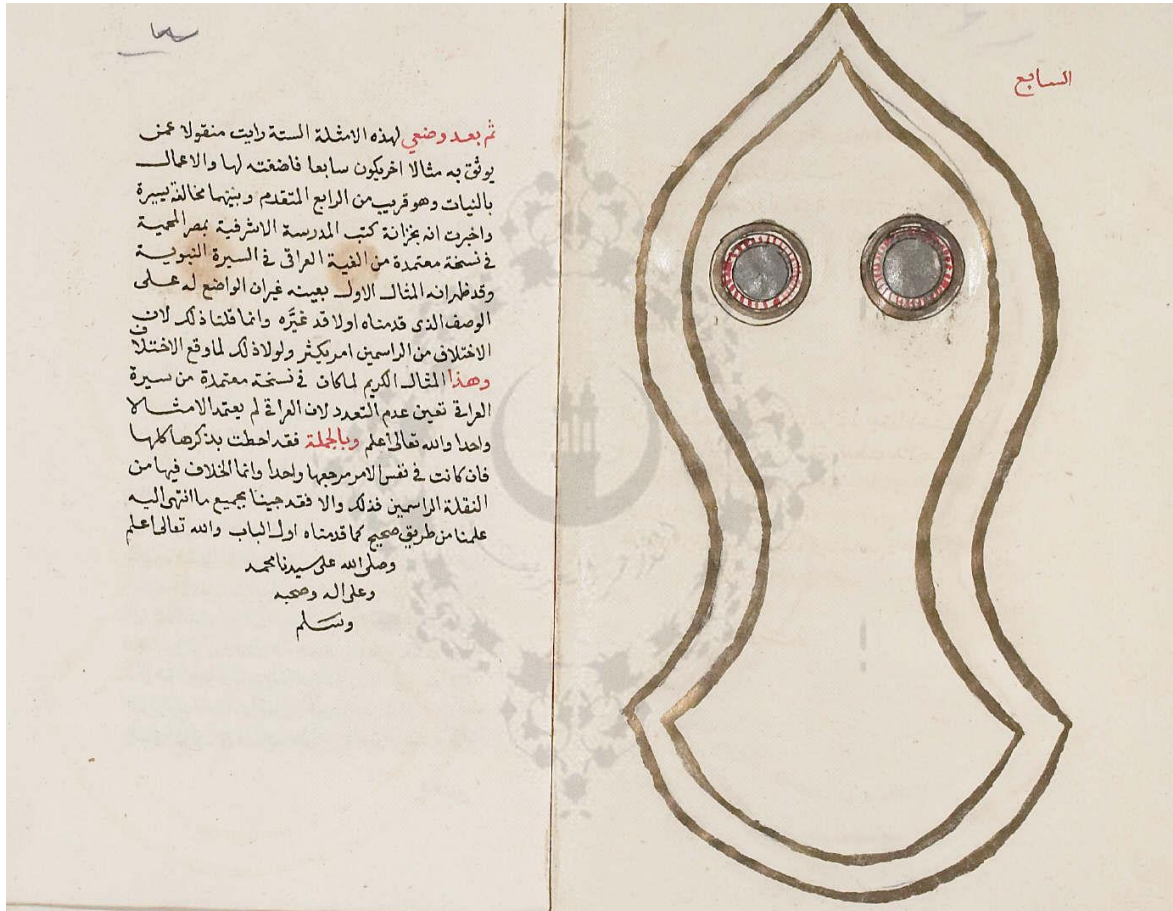 السابع
ثم بعد وضعي لهذه الامثلة الستة رايت منقولا عمن
يوثق به مثالا اخر يكون سابعا فاضفته لها والاعمال
بالنيات وهو قريب من الرابع المتقدم وبينهما مخالفة يسيرة
واخبرت انه بخزانة كتب المدرسة الاشرفية بمصر المحمية
في نسخة معتمدة من الفية العراقى فى السيرة النبوية
وقد ظهر انه المثال الاول بعينه غير ان الواضع له على
الوصف الذى قدمناه اولا قد غيَّره وانما قلنا ذلك لان
الاختلاف من الراسمين امر يكثر ولولا ذلك لما وقع الاختلاف
وهذا المثال الكريم لما كان فى نسخة معتمدة من سيرة
العراقى تعين عدم التعدد لان العراقى لم يعتمد الا مثالا
واحدا والله تعالى اعلم وبالجملة فقد احطت بذكرها كلها
فان كانت فى نفس الامر مرجعها واحدا وانما الخلاف فيها من
النقلة الراسمين فذلك والا فقد جينا بجميع ما انتهى اليه
علمنا من طريق صحيح كما قدمناه اول الباب والله تعالى اعلم
وصلى الله على سيدنا محمد
وعلى اله وصحبه
وسلم